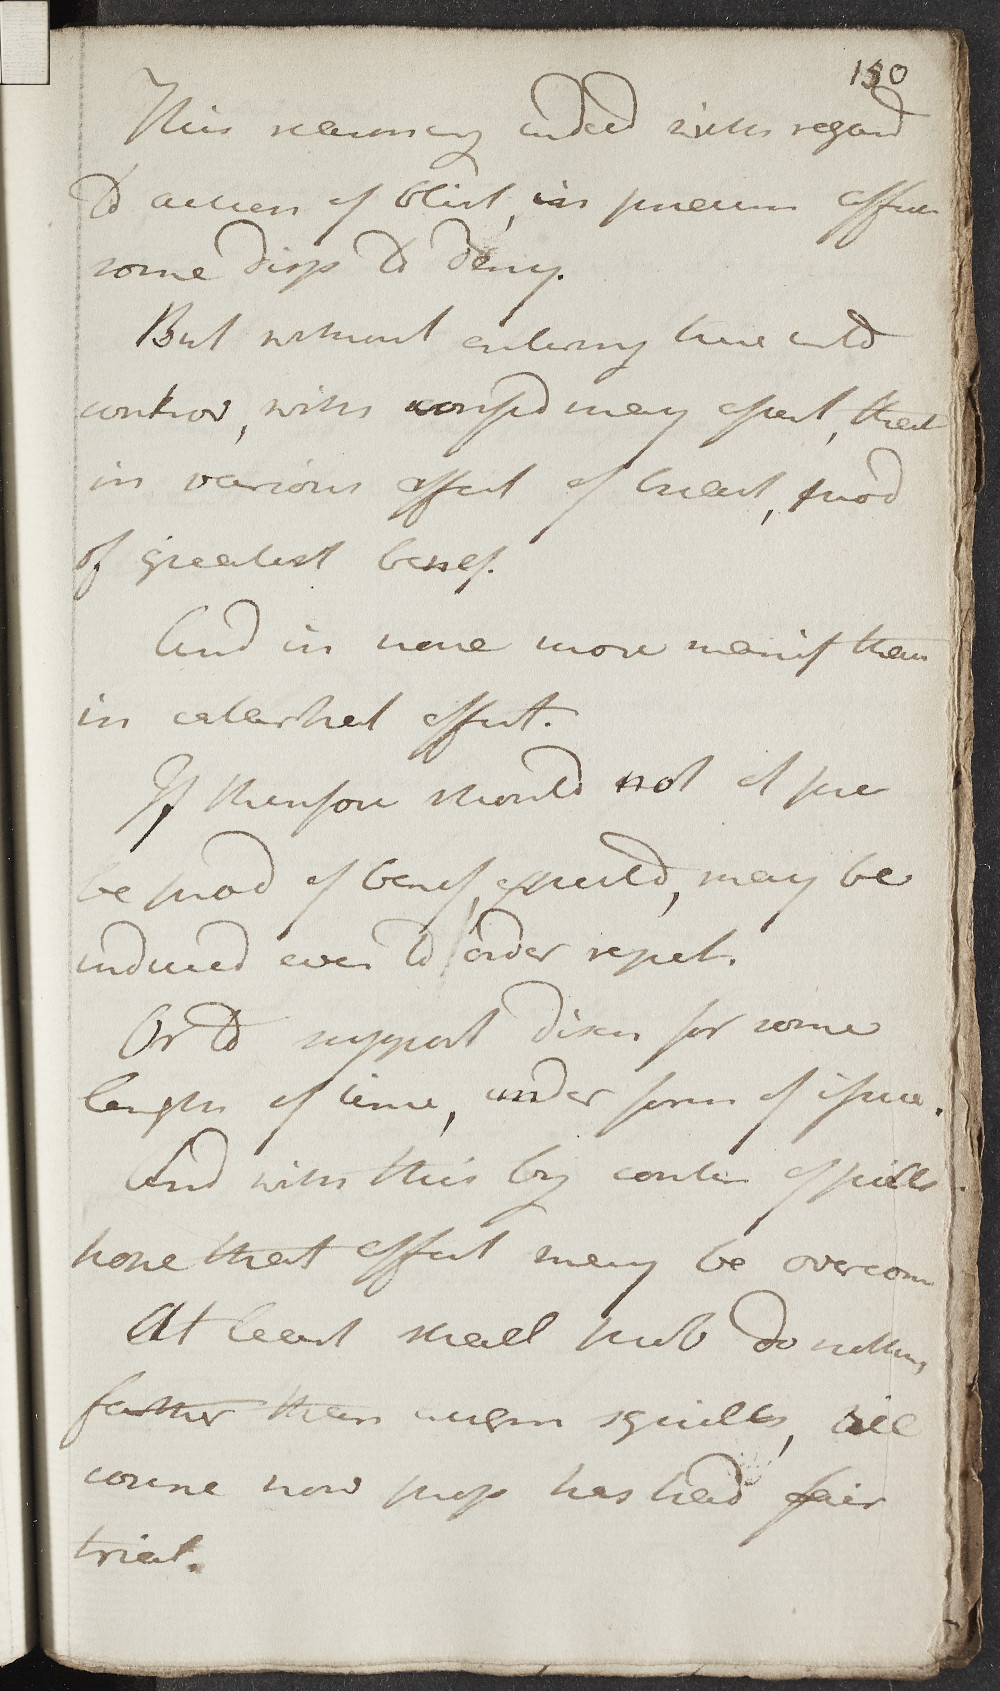 130
This reasoning indeed with regard
to action of blist, in pneum affec
some disp to deny.
But without entering here into
controv, with confid may assert, that
in various affect of breast, prod
of greatest benef.
And in none more manif than
in catarrhal affect.
If therefore should not at pre
be prod of benef expected, may be
induced even to order repet.
Or to support disch for some
length of time, under form of issue.
And with this by contin of pills
hope that affect may be overcom
At least shall prob do nothing
farther than augm squills, till
course now prop has had fair
trial.